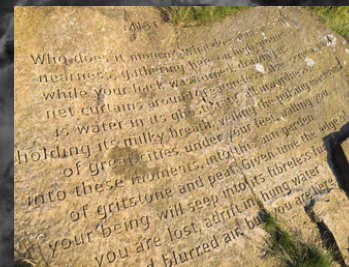 MIST
Who does it mourn? What does it mean, such
nearness, gathering here on high ground
while your back was turned, drawing its
net curtains around? Featureless silver screen, mist
is water in its ghost state, all inwardness,
holding its milky breath, veiling the pulsing machines
of great cities under your feet, walling you
into these moments, into this anti-garden
of gritstone and peat. Given time the edge of
your being will seep into its fibreless fur
you are lost, adrift in hung water
blurred air, but you are here